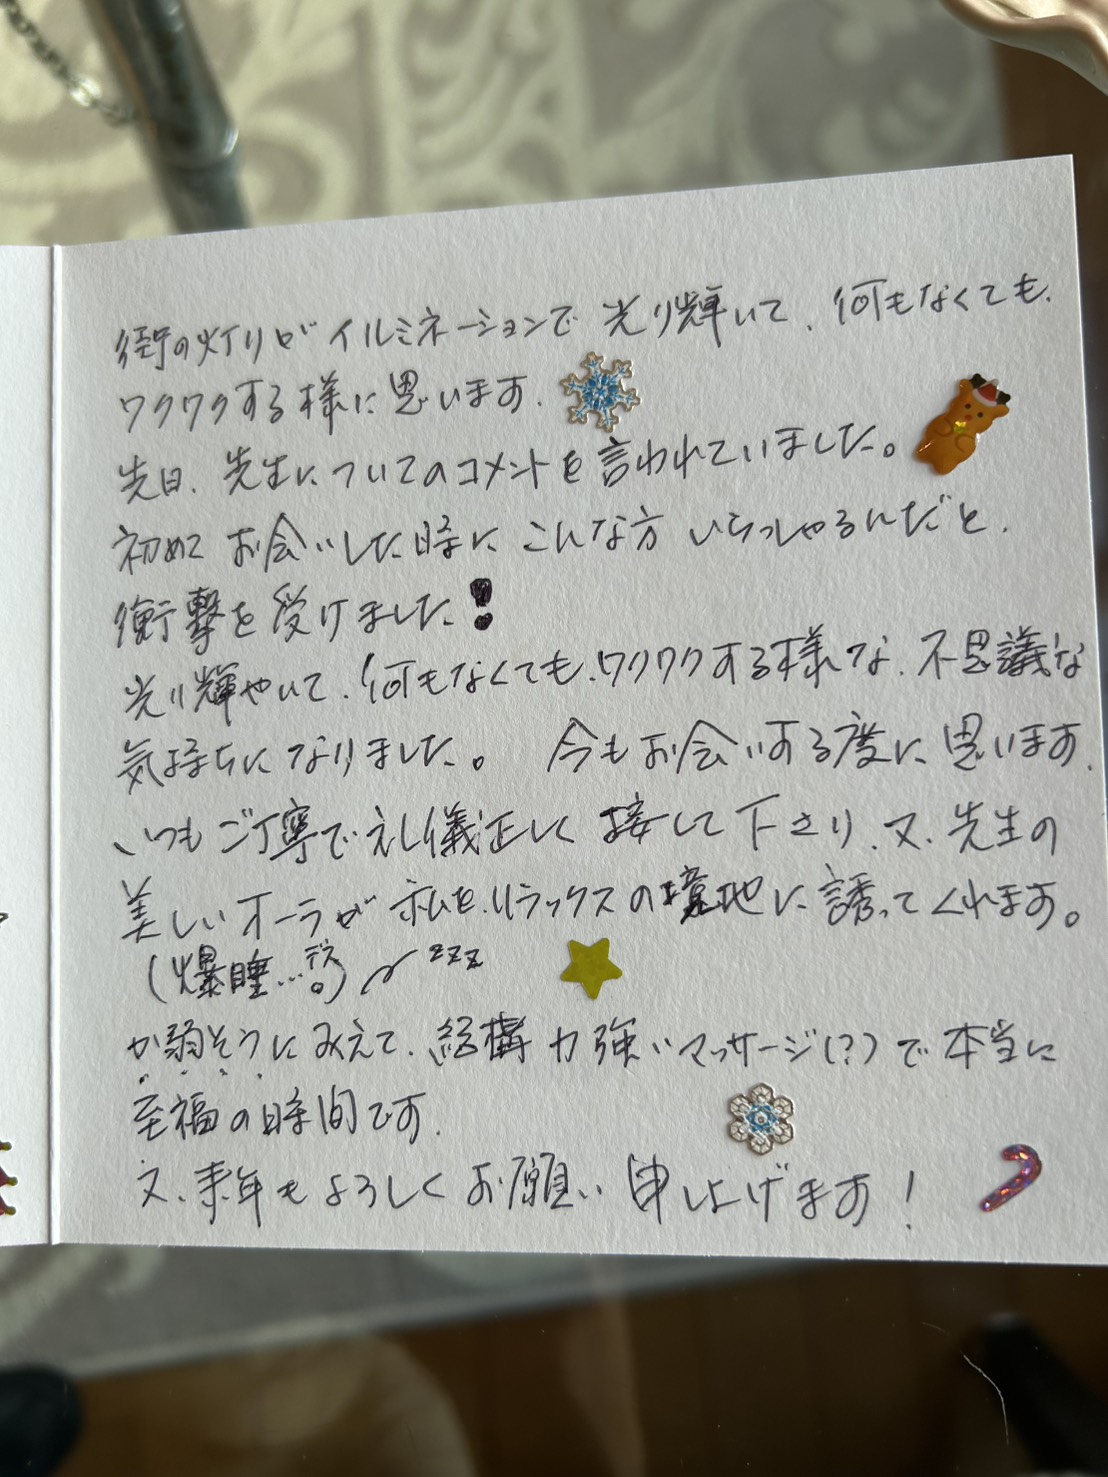 街の灯りがイルミネーションで光り輝いて、何もなくても、
ワクワクする様に思います。
先日、先生についてのコメントを言われていました。
初めてお会いした時にこんな方いらっしゃるんだと、
衝撃を受けました!
光り輝やいて、何もなくても、ワクワクする様な、不思議な
気持ちになりました。 今もお会いする度に思います。
いつもご丁寧で礼儀正しく接して下さり、又、先生の
美しいオーラが私を、リラックスの境地に誘ってくれます。
(爆睡…デス。) zzz
か弱そうにみえて、結構力強いマッサージ(?)で本当に
至福の時間です。
又、来年もよろしくお願い申し上げます!